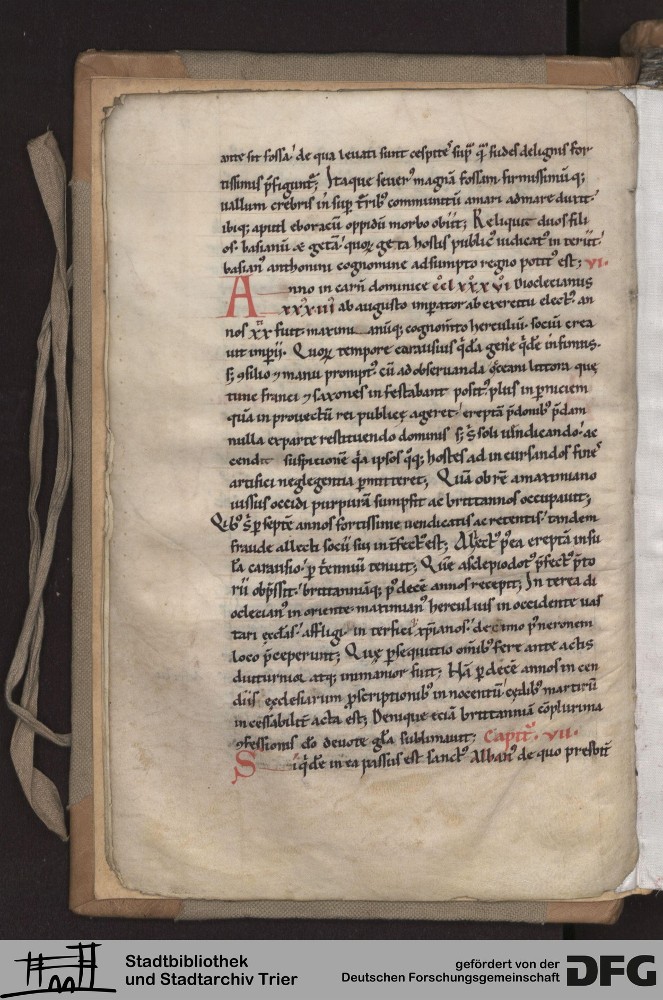 ante sit fossa, de qua leuati sunt cespites, sup̄ q̄ sudes de lignis for
tissimis p̄figunt᷒; Itaque seuer᷒ magnā fossam firmissimū q;
uallum crebris in sup̄ t̄rib᷒ communitū amari ad mare duxit;
ibiq; aput eboracū oppidū morbo obiit; Reliquit duos fili
os. basianū & getā; quoꝝ geta hostis public᷒ iudicat᷒ interiit;
basian᷒ anthonini cognomine adsumpto regno potit᷒ est; vi.
Anno incarn̄ dominice cclxxxvi. Dioclecianus
xxxiii ab augusto imperator ab exercitu elect᷒ an
nos xx fuit. maximianūq; cognom̄to herculiū. sociū crea
uit imperii. Quoꝝ tempore carausius q̄dā gen̄e q̄dē infimus.
s; ꝯsilio ⁊ manu prompt᷒. cū ad obseruanda oceani littora que
tunc franci ⁊ saxones infestabant posit᷒ plus in p̄niciem
quā in prouectū rei publicę ageret, ereptā p̄donib᷒ p̄dam
nulla ex parte restituendo dominis s; s̄ soli uendicando, ac
cendit suspicionē q̄a ipsos q̄q; hostes ad incursandos fines
artifici neglegentia p̄mitteret; Quā ob rē a maximiano
iussus occidi purpurā sumpsit ac brittannos occupauit;
Qib᷒ s̄ p̄ septē annos fortissime uendicatis ac retentis, tandem
fraude allecti socii sui int̄fect᷒ est; Allect᷒ p̄ea ereptā insu
lā carausio, p̄ t̄ennium tenuit; Quē asclepiodot᷒ p̄fect᷒ p̄to
rii opp̄ssit, brittanniāq; p᷒ decē annos recepit; Interea di
oclecian᷒ in oriente. maximian᷒ herculius in occidente uas
tari ecclias. affligi. interfici xp̄ianos. decimo p᷒ neronem
loco p̄ceperunt; Quę p̄sequutio om̄ib᷒ fere ante actis
diuturnior atq; immanior fuit; Hā p̄ decē annos incen
diis ęclesiarum p̄scriptionib᷒ innocentū cędib᷒ martirū
incessabilit̄ acta est; Denique etiā brittanniā cōplurima
ꝯfessionis dō deuote gl̄a sublimauit; Capit᷒. vii.
Siq̄dē in ea passus est sanct᷒ Alban᷒ de quo presbit̄
Stadtbibliothek
und Stadtarchiv Trier
gefördert von der
Deutschen Forschungsgemeinschaft
DFG